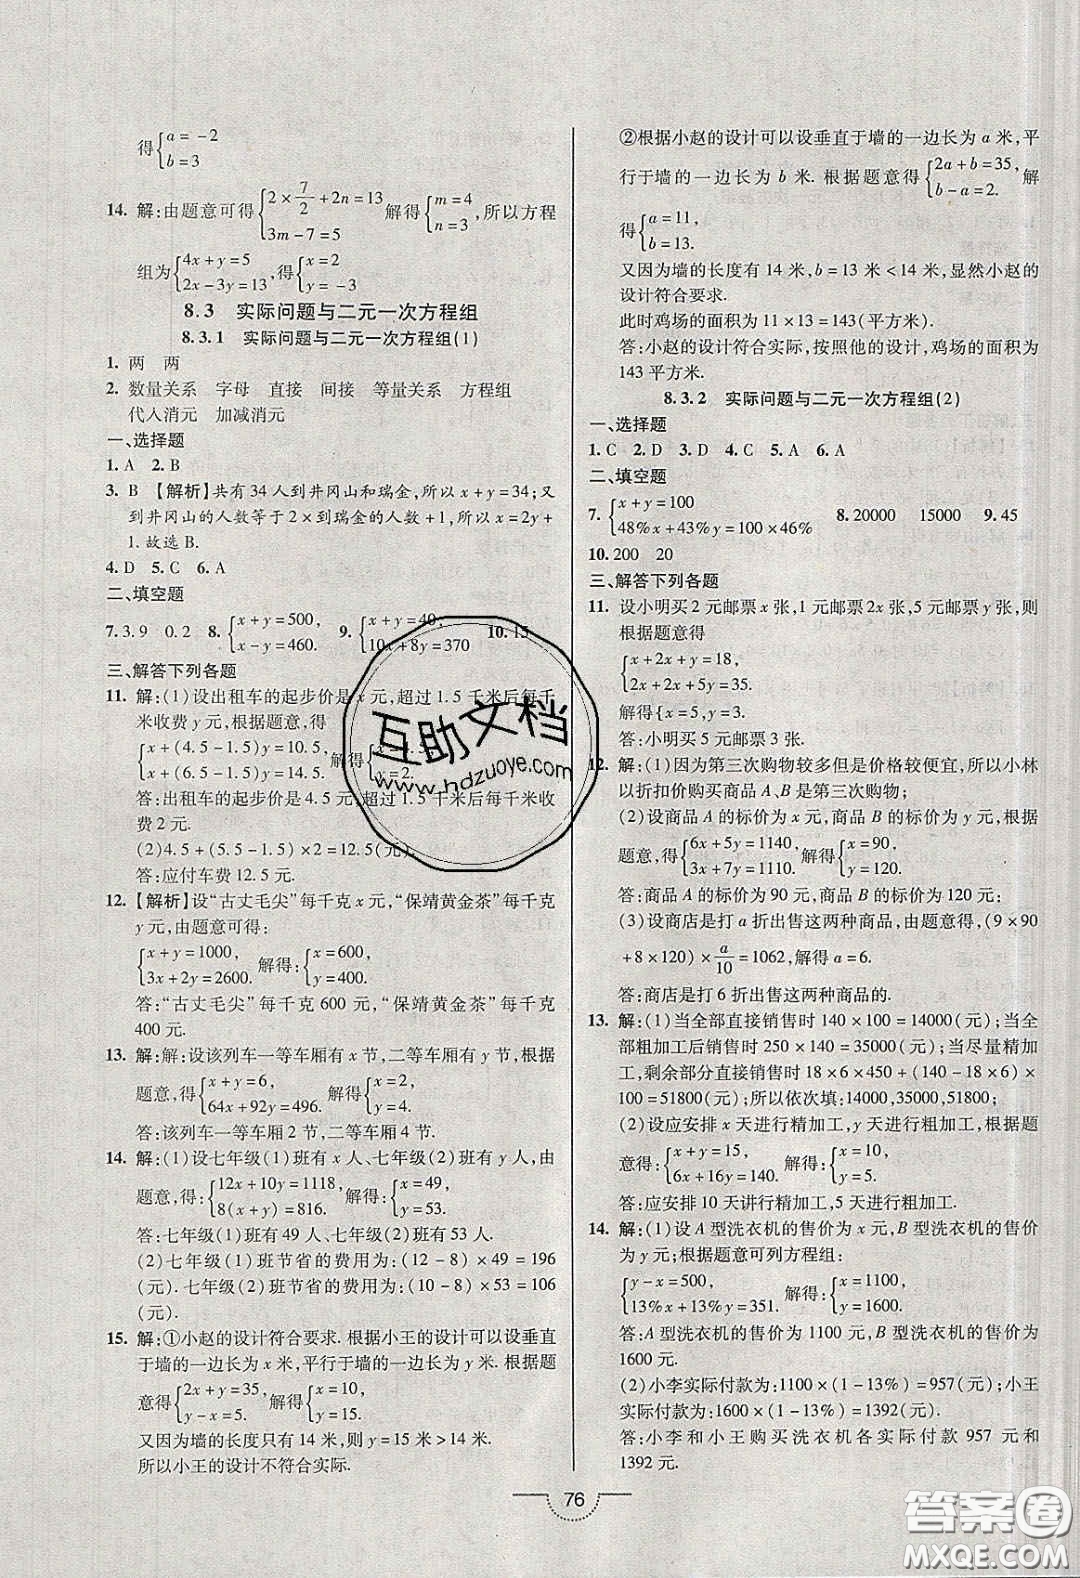 得{a=-2
b=3
14. 解:由题意可得{2×7/2+2n=13
3m-7=5 解得{m=4
n=3,所以方程
组为{4x+y=5
2x-3y=13,得{x=2
y=-3
8.3 实际问题与二元一次方程组
8.3.1 实际问题与二元一次方程组(1)
1. 两 两
2. 数量关系 字母 直接 间接 等量关系 方程组
代人消元 加减消元
一、选择题
1. A 2. B
3. B 【解析】共有 34 人到井冈山和瑞金,所以 x+y=34;又
到井冈山的人数等于 2×到瑞金的人数+1,所以 x=2y+
1.故选 B.
4. D 5. C 6. A
二、填空题
7. 3.9 0.2 8. {x+y=500,
x-y=460. 9. {x+y=40,
10x+8y=370 10. 15
三、解答下列各题
11. 解:(1)设出租车的起步价是 x 元,超过 1.5 千米后每千
米收费 y 元,根据题意,得
{x+(4.5-1.5)y=10.5,
x+(6.5-1.5)y=14.5. 解得{x=4.5,
y=2.
答:出租车的起步价是 4.5 元,超过 1.5 千米后每千米收
费 2 元.
(2)4.5+(5.5-1.5)×2=12.5(元).
答:应付车费 12.5 元.
12. 【解析】设“古丈毛尖”每千克 x 元,“保靖黄金茶”每千克
y 元,由题意可得:
{x+y=1000,
3x+2y=2600. 解得:{x=600,
y=400.
答:“古丈毛尖”每千克 600 元,“保靖黄金茶”每千克
400 元.
13. 解:解:设该列车一等车厢有 x 节,二等车厢有 y 节,根据
题意,得{x+y=6,
64x+92y=496. 解得{x=2,
y=4.
答:该列车一等车厢 2 节,二等车厢 4 节.
14. 解:(1)设七年级(1)班有 x 人、七年级(2)班有 y 人,由
题意,得:{12x+10y=1118,
8(x+y)=816. 解得:{x=49,
y=53.
答:七年级(1)班有 49 人、七年级(2)班有 53 人.
(2)七年级(1)班节省的费用为:(12-8)×49=196
(元).七年级(2)班节省的费用为:(10-8)×53=106
(元).
15. 解:①小赵的设计符合要求.根据小王的设计可以设垂直
于墙的一边长为 x 米,平行于墙的一边长为 y 米. 根据题
意得{2x+y=35,
y-x=5. 解得{x=10,
y=15.
又因为墙的长度只有 14 米,则 y=15 米>14 米.
所以小王的设计不符合实际.
②根据小赵的设计可以设垂直于墙的一边长为 a 米,平
行于墙的一边长为 b 米. 根据题意得{2a+b=35,
b-a=2. 解
得{a=11,
b=13.
又因为墙的长度有 14 米,b=13 米<14 米,显然小赵的
设计符合要求.
此时鸡场的面积为 11×13=143(平方米).
答:小赵的设计符合实际,按照他的设计,鸡场的面积为
143 平方米.
8.3.2 实际问题与二元一次方程组(2)
一、选择题
1. C 2. D 3. D 4. C 5. A 6. A
二、填空题
7. {x+y=100
48%x+43%y=100×46% 8. 20000 15000 9. 45
10. 200 20
三、解答下列各题
11. 设小明买 2 元邮票 x 张,1 元邮票 2x 张,5 元邮票 y 张,则
根据题意得
{x+2x+y=18,
2x+2x+5y=35.
解得{x=5,y=3.
答:小明买 5 元邮票 3 张.
12. 解:(1)因为第三次购物较多但是价格较便宜,所以小林
以折扣价购买商品 A、B 是第三次购物;
(2)设商品 A 的标价为 x 元,商品 B 的标价为 y 元,根据
题意,得{6x+5y=1140,
3x+7y=1110. 解得:{x=90,
y=120.
答:商品 A 的标价为 90 元,商品 B 的标价为 120 元;
(3)设商店是打 a 折出售这两种商品,由题意得,(9×90
+8×120)×a/10=1062,解得 a=6.
答:商店是打 6 折出售这两种商品的.
13. 解:(1)当全部直接销售时 140×100=14000(元);当全
部粗加工后销售时 250×140=35000(元);当尽量精加
工,剩余部分直接销售时 18×6×450+(140-18×6)×
100=51800(元);所以依次填:14000,35000,51800;
(2)设应安排 x 天进行精加工,y 天进行粗加工,根据题
意得:{x+y=15,
6x+16y=140. 解得:{x=10,
y=5.
答:应安排 10 天讲行精加工,5 天进行粗加工.
14. 解:(1)设 A 型洗衣机的售价为 x 元,B 型洗衣机的售价
为 y 元;根据题意可列方程组:
{y-x=500,
13%x+13%y=351. 解得:{x=1100,
y=1600.
答:A 型洗衣机的售价为 1100 元,B 型洗衣机的售价为
1600 元.
(2)小李实际付款为:1100×(1-13%)=957(元);小王
实际付款为:1600×(1-13%)=1392(元).
答:小李和小王购买洗衣机各实际付款 957 元和
1392 元.
76
互助文档
www.hdzuoye.com
答案圈
MXQE.COM